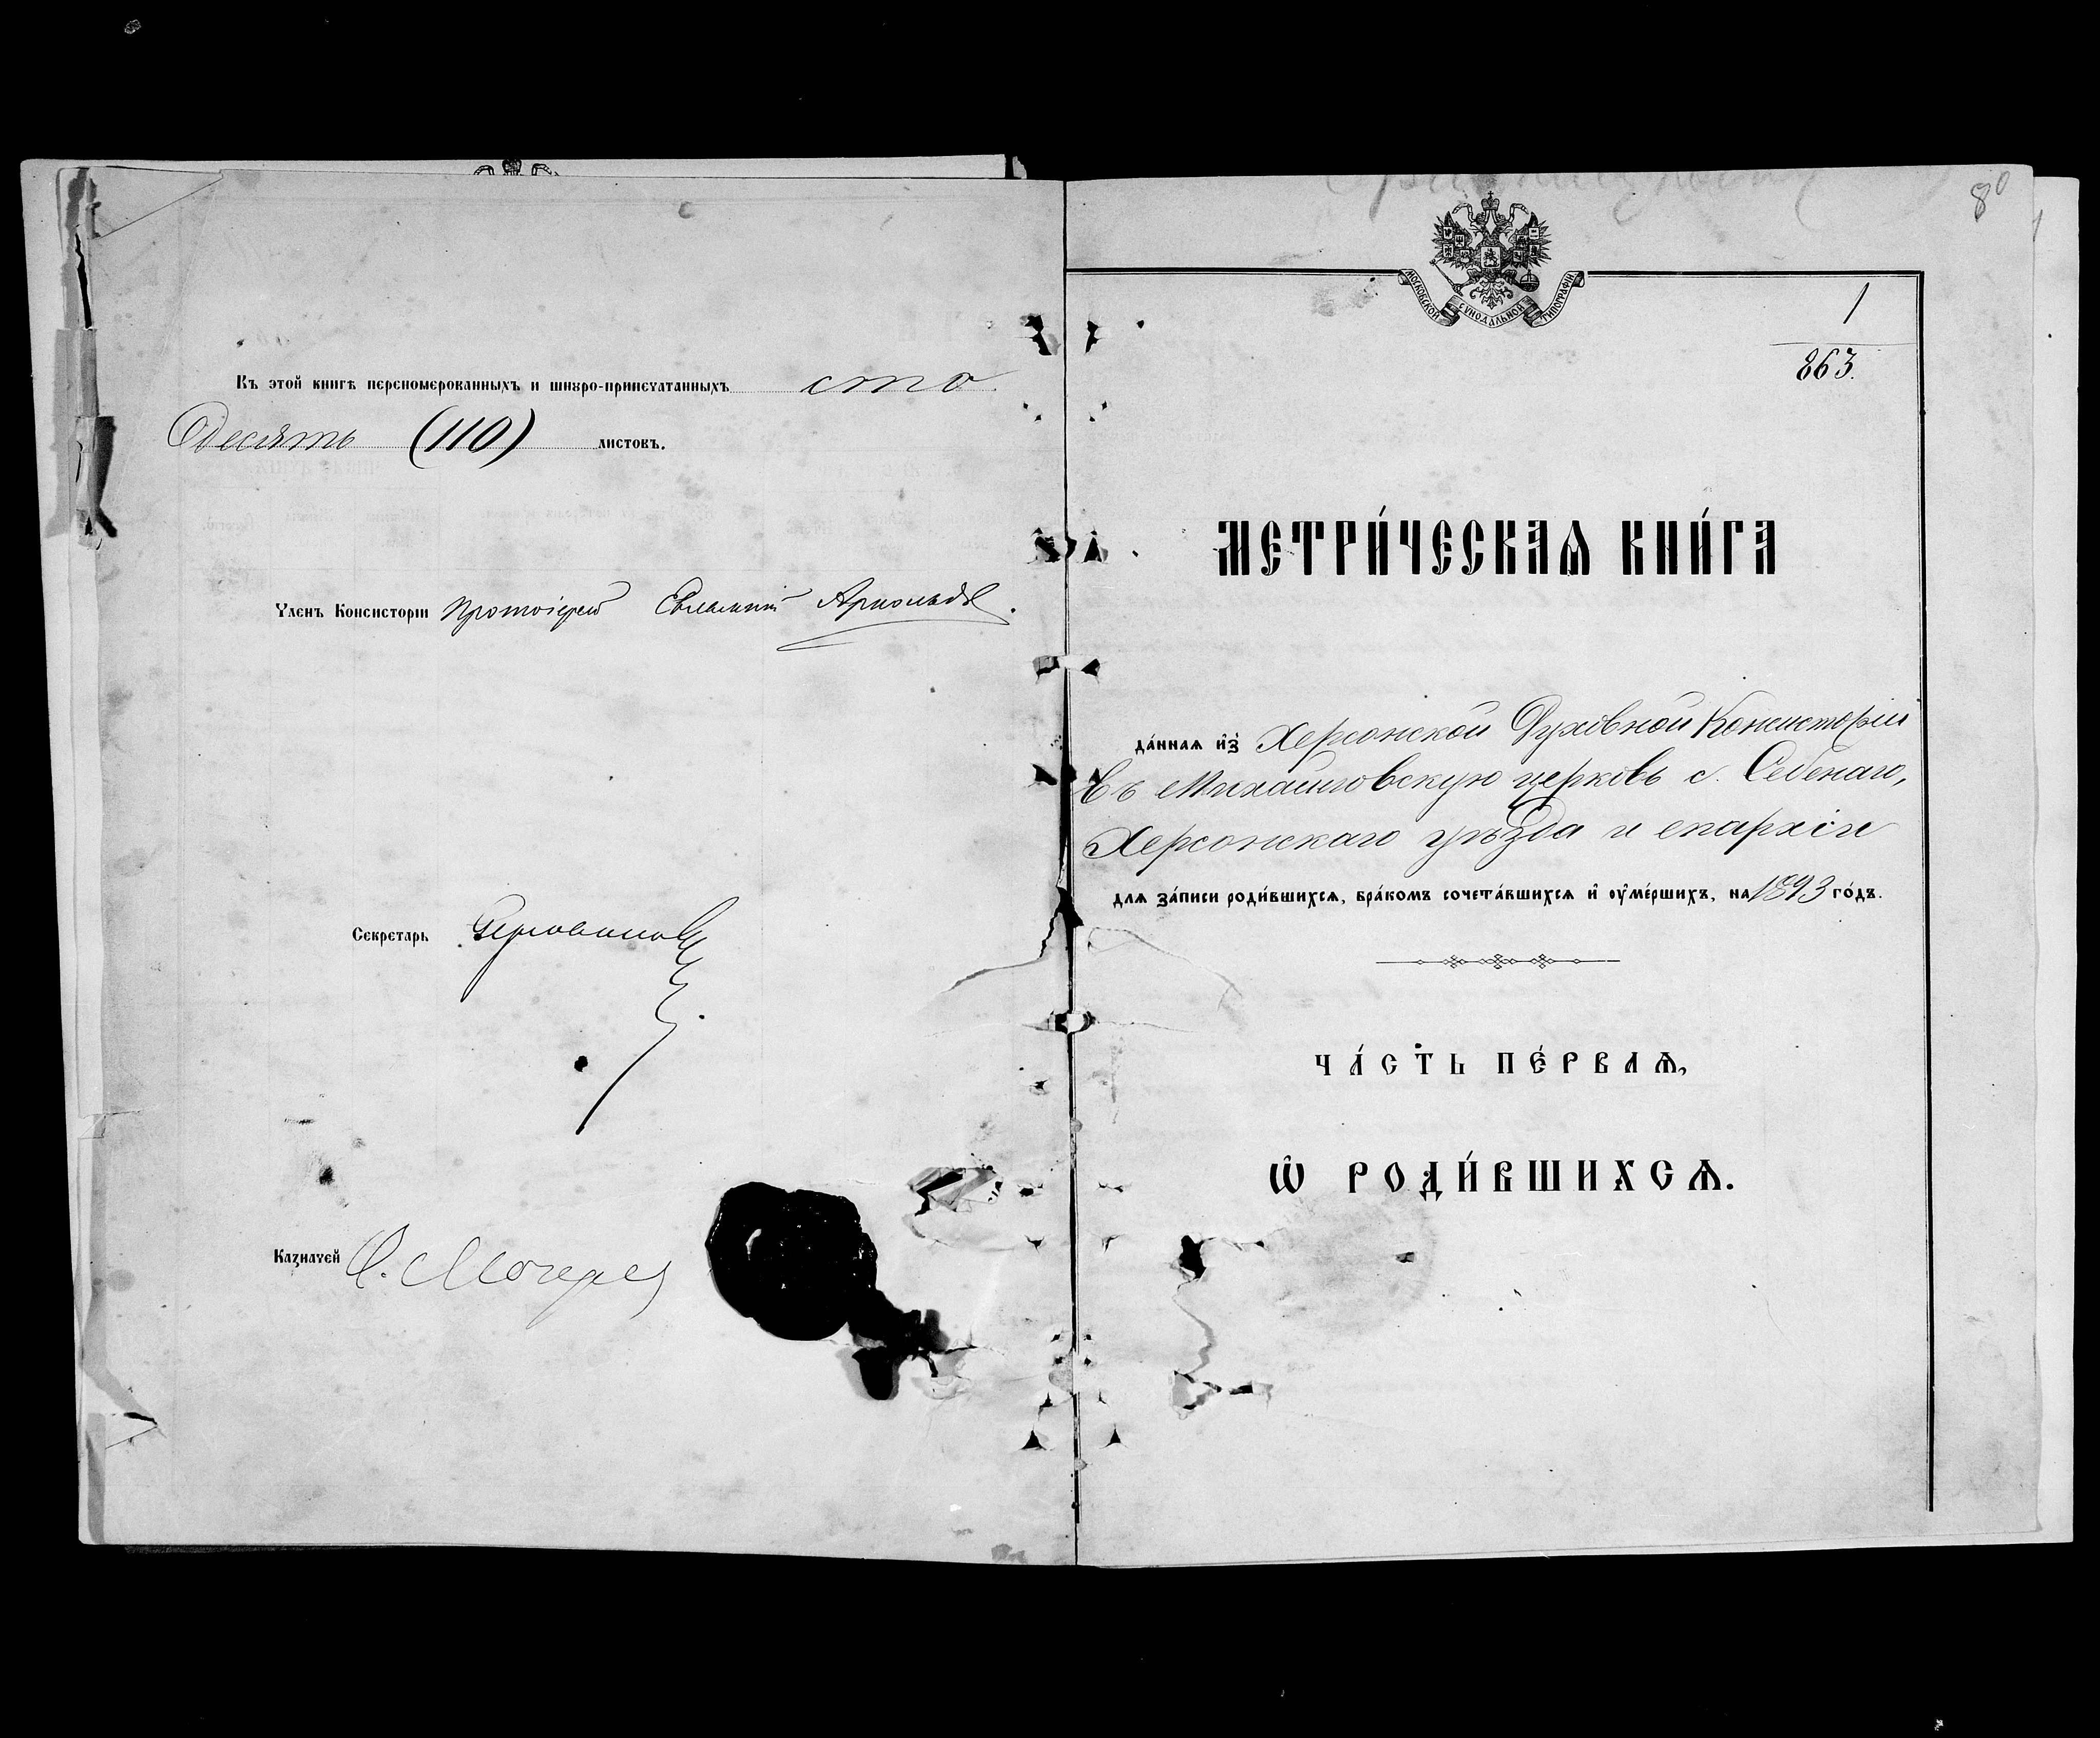 Къ этой книгѣ перенѹмерованныхъ и шнѹро-припечатанныхъ сто
десять (110) листовъ.
Членъ Консисторіи Протоіерей Евлампій Арнольдовъ.
Секретарь
Казначей
80
МОСКОВСКОЙ СѴНОДАЛЬНОЙ ТИПОГРАФІИ
1
863.
МЕТРИ́ЧЕСКАѦ КНИ́ГА
да́ннаѧ и҆зъ Херсонской Духовной Консисторіи
Въ Михайловскую церковь с. Себенаго,
Херсонскаго уѣзда и епархіи
длѧ за́писи роди́вшихсѧ, бра́комъ сочета́вшихсѧ и҆ ѹ҆ме́ршихъ, на 1893 го́дъ.
ЧА́СТЬ ПЕ́РВАѦ,
Ѡ҆ РОДИ́ВШИХСѦ.